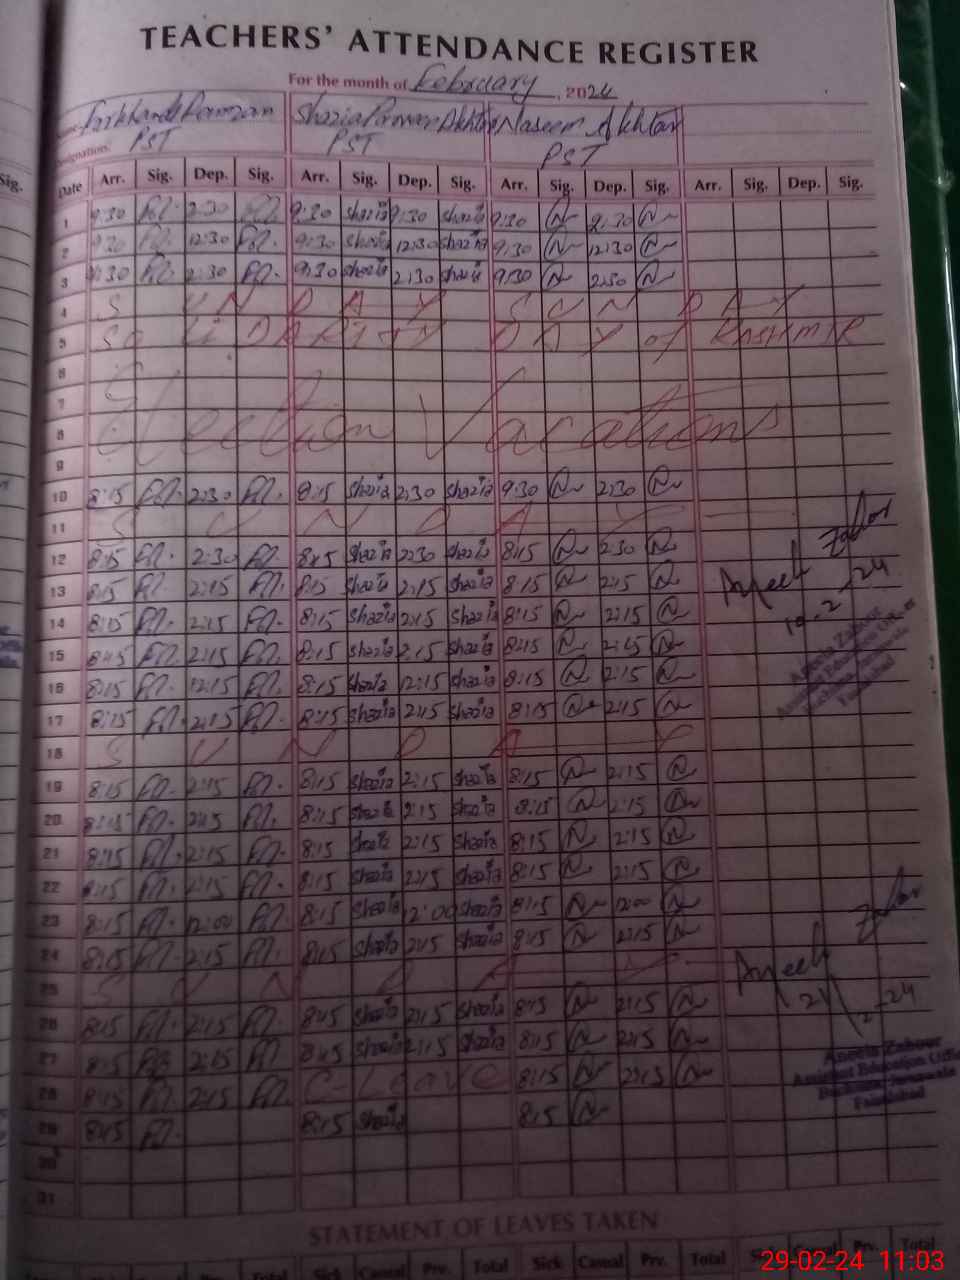 TEACHERS' ATTENDANCE REGISTER
For the month of February, 2024
Shazia Akhtar Naseem Akhtar
Designation: PST PST PST
Date Arr. Sig. Dep. Sig. Arr. Sig. Dep. Sig. Arr. Sig. Dep. Sig. Arr. Sig. Dep. Sig.
1 9:30 2:30 9:30 Shazia 2:30 Shazia 9:30 2:30
2 9:30 12:30 9:30 Shazia 12:30 Shazia 9:30 12:30
3 9:30 2:30 9:30 Shazia 2:30 Shazia 9:30 2:30
4 S U N D A Y S U N D A Y
5 SoLiDARiTY DAY of KASHMIR
6
7
8 Election Vacations
9
10 8:15 2:30 8:15 Shazia 2:30 Shazia 9:30 2:30
11 S U N D A Y
12 8:15 2:30 8:15 Shazia 2:30 Shazia 8:15 2:30
13 8:15 2:15 8:15 Shazia 2:15 Shazia 8:15 2:15
14 8:15 2:15 8:15 Shazia 2:15 Shazia 8:15 2:15
15 8:15 2:15 8:15 Shazia 2:15 Shazia 8:15 2:15
16 8:15 12:15 8:15 Shazia 12:15 Shazia 8:15 2:15
17 8:15 2:15 8:15 Shazia 2:15 Shazia 8:15 2:15
18 S U N D A Y
19 8:15 2:15 8:15 Shazia 2:15 Shazia 8:15 2:15
20 8:15 2:15 8:15 Shazia 2:15 Shazia 8:15 2:15
21 8:15 2:15 8:15 Shazia 2:15 Shazia 8:15 2:15
22 8:15 2:15 8:15 Shazia 2:15 Shazia 8:15 2:15
23 8:15 12:00 8:15 Shazia 12:00 Shazia 8:15 12:00
24 8:15 2:15 8:15 Shazia 2:15 Shazia 8:15 2:15
25 S U N D A Y
26 8:15 2:15 8:15 Shazia 2:15 Shazia 8:15 2:15
27 8:15 2:15 8:15 Shazia 2:15 Shazia 8:15 2:15
28 8:15 2:15 C-Leave 8:15 2:15
29 8:15 8:15 Shazia 8:15
30
31
Aneela Zahoor
Assistant Education Officer
Faisalabad
STATEMENT OF LEAVES TAKEN
Sick Casual Prv. Total Sick Casual Prv. Total Sick Casual Prv. Total
29-02-24 11:03